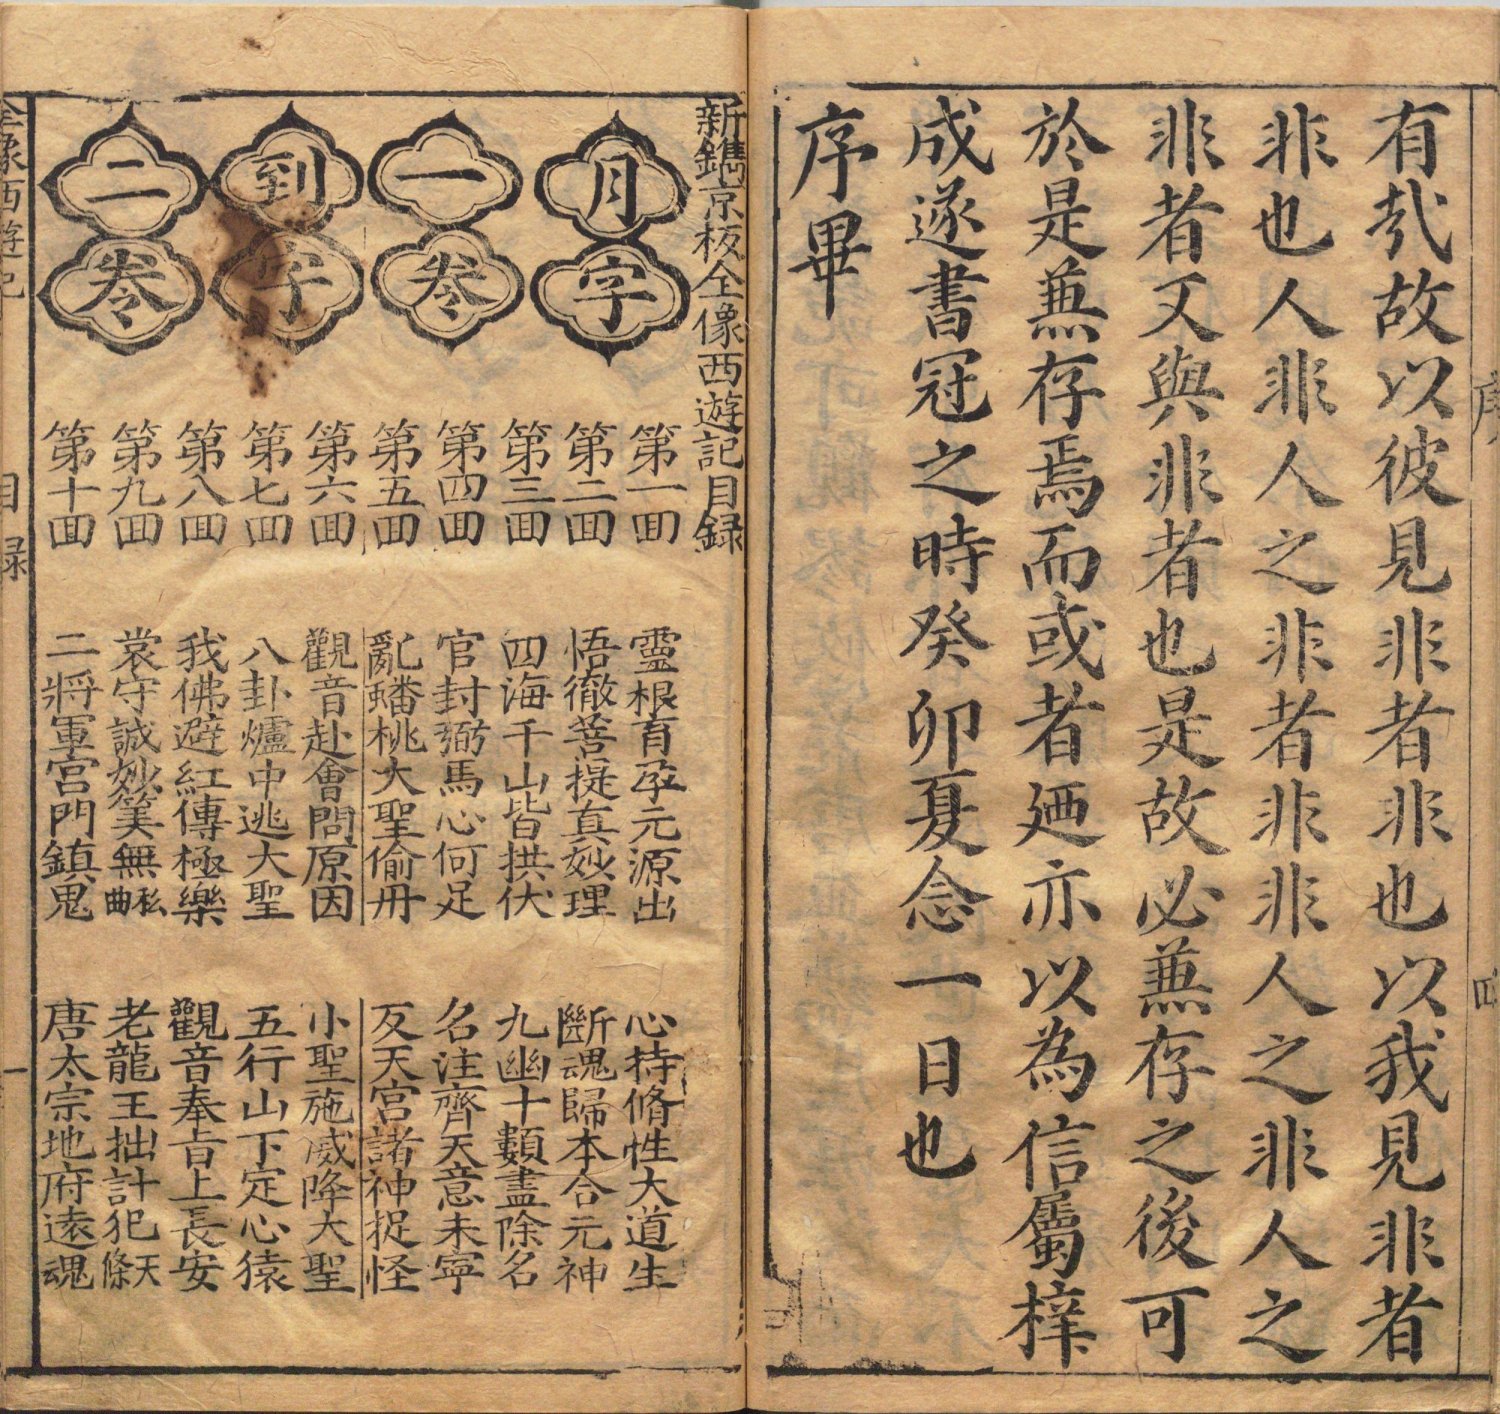 序
四
有哉故以彼見非者非也以我見非者
非也人非人之非者非非人之非人之
非者又與非者也是故必兼存之後可
於是兼存焉而或者廼亦以為信屬梓
成遂書冠之時癸卯夏念一日也
序畢
新鐫京板全像西遊記目録
月字
一卷
到字
二卷
第一囬 靈根育孕元源出 心持脩性大道生
第二囬 悟徹菩提真妙理 斷魂歸本合元神
第三囬 四海千山皆拱伏 九幽十類盡除名
第四囬 官封弼馬心何足 名注齊天意未寧
第五囬 亂蟠桃大聖偷丹 反天宮諸神捉怪
第六囬 觀音赴會問原因 小聖施威降大聖
第七囬 八卦爐中逃大聖 五行山下定心猿
第八囬 我佛避紅傳極樂 觀音奉旨上長安
第九囬 袁守誠妙筭無私曲 老龍王拙計犯天條
第十囬 二將軍宮門鎮鬼 唐太宗地府還魂
全像西遊記
目録
一